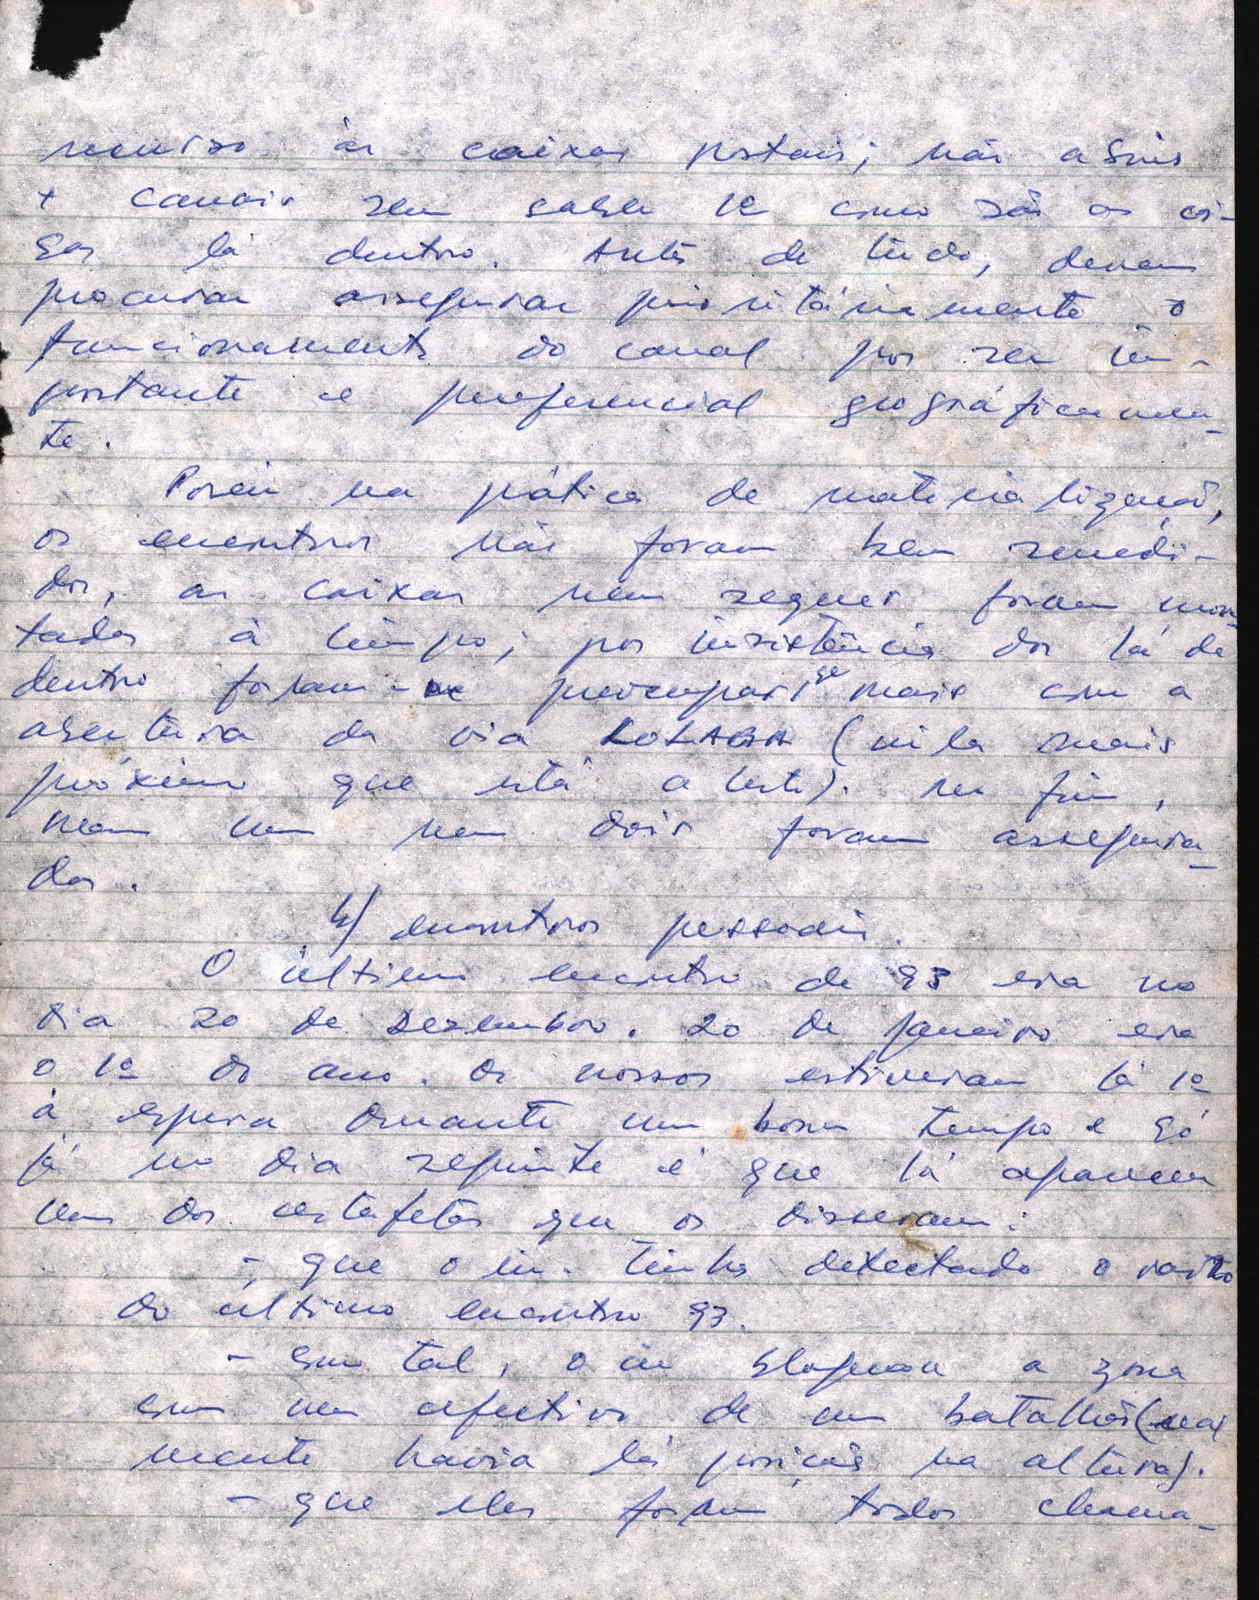 recurso às caixas postais; não abrir
+ canais sem saber se como são as coi-
sas lá dentro. Antes de tudo, devem
procurar assegurar prioritáriamente o
funcionamento do canal por ser im-
portante e preferencial geográficamen-
te.
Porém na prática de materialização,
os encontros não foram bem
dos, as caixas nem sequer foram mon-
tadas à tempo; por insistência dos lá de
dentro foram preocupar-se mais com a
abertura da via (vila mais
próxima que está a leste). No fim,
nem um nem dois foram assegura-
dos.
4/ encontros pessoais.
O último encontro de 93 era no
dia 20 de Dezembro. 20 de Janeiro era
o 1º do ano. Os nossos estiveram lá 1º
à espera durante um bom tempo e só
já no dia seguinte é que lá apareceu
um dos estafetas que os disseram:
- que o in. tinha detectado o rasto
do último encontro 93.
- em tal, o in bloqueou a zona
com um efectivo de um batalhão (real
mente havia lá posição na altura).
- que eles foram todos chama-